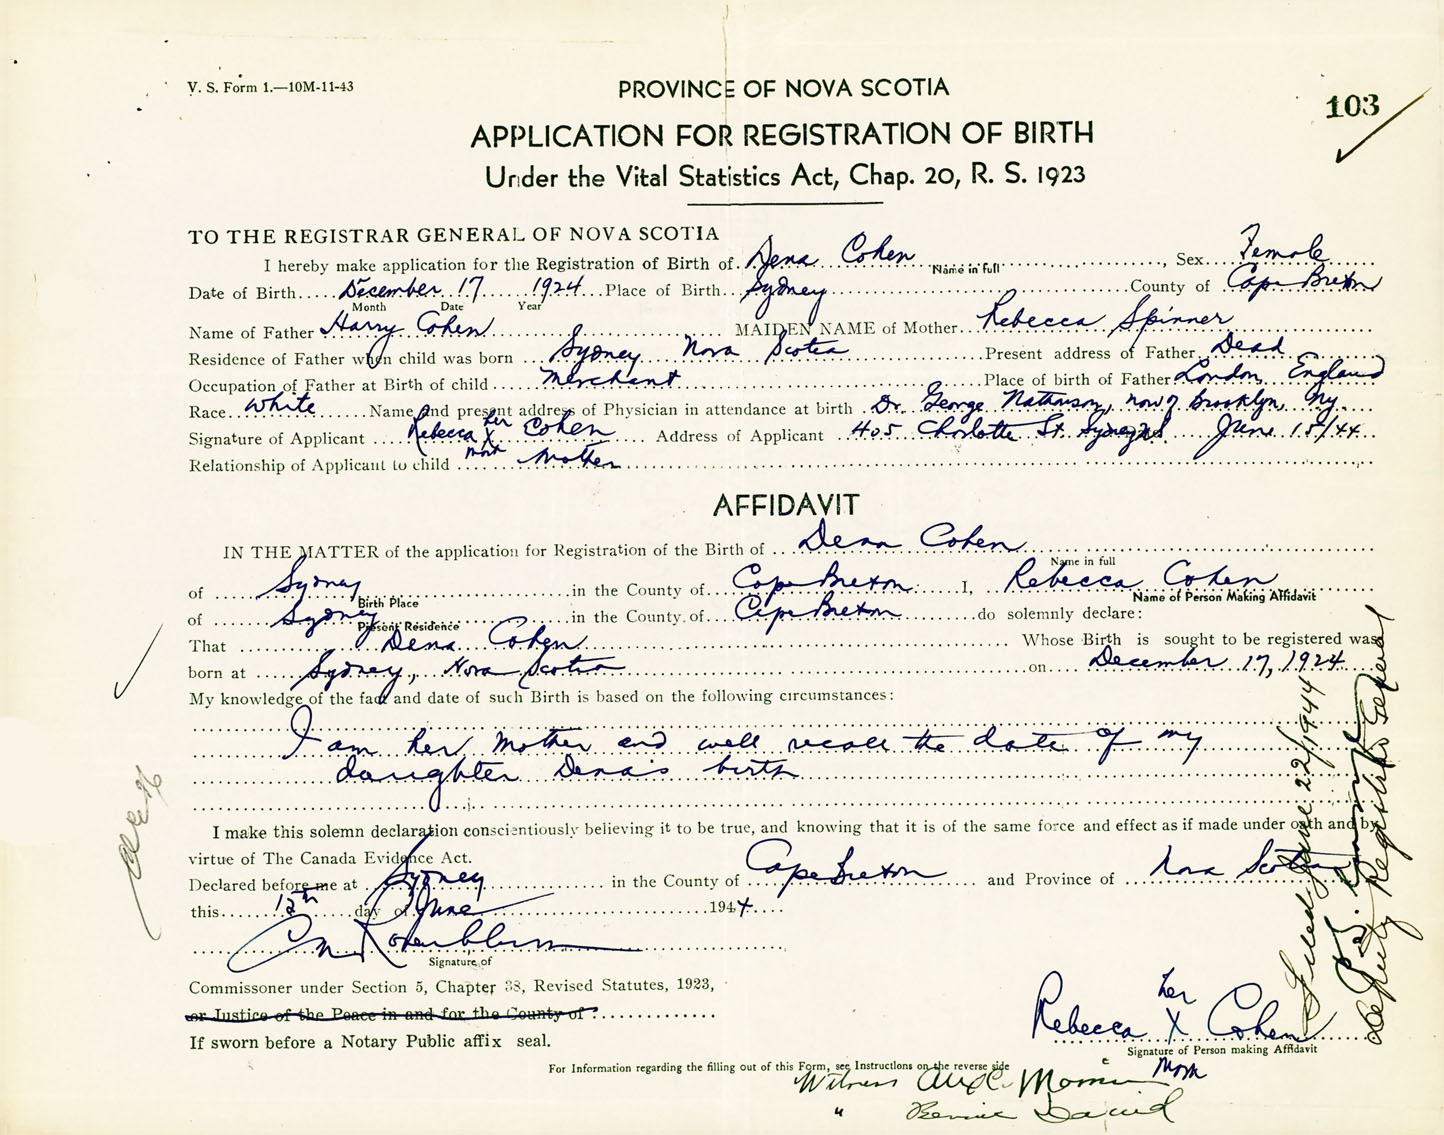 V. S. Form 1.—10M-11-43
PROVINCE OF NOVA SCOTIA
103
APPLICATION FOR REGISTRATION OF BIRTH
Under the Vital Statistics Act, Chap. 20, R. S. 1923
TO THE REGISTRAR GENERAL OF NOVA SCOTIA
I hereby make application for the Registration of Birth of Dena Cohen, Sex Female
Name in full
Date of Birth December 17 1924 Place of Birth Sydney County of Cape Breton
Month Date Year
Name of Father Harry Cohen MAIDEN NAME of Mother Rebecca Spinner
Residence of Father when child was born Sydney Nova Scotia Present address of Father Dead
Occupation of Father at Birth of child Merchant Place of birth of Father London, England
Race White Name and present address of Physician in attendance at birth Dr. George Nathanson, now of Brooklyn, Ny.
Signature of Applicant Rebecca her X mark Cohen Address of Applicant 405 Charlotte St. Sydney NS June 15/44
Relationship of Applicant to child Mother
AFFIDAVIT
IN THE MATTER of the application for Registration of the Birth of Dena Cohen
Name in full
of Sydney in the County of Cape Breton I, Rebecca Cohen
Birth Place Name of Person Making Affidavit
of Sydney in the County of Cape Breton do solemnly declare:
Present Residence
That Dena Cohen Whose Birth is sought to be registered was
born at Sydney, Nova Scotia on December 17, 1924
My knowledge of the fact and date of such Birth is based on the following circumstances:
I am her mother and well recall the date of my
daughter Dena's birth
I make this solemn declaration conscientiously believing it to be true, and knowing that it is of the same force and effect as if made under oath and by
virtue of The Canada Evidence Act.
Declared before me at Sydney in the County of Cape Breton and Province of Nova Scotia
this 12th day of June 1944
C M Rosenblum
Signature of
Commissoner under Section 5, Chapter 38, Revised Statutes, 1923,
or Justice of the Peace in and for the County of
If sworn before a Notary Public affix seal.
Rebecca her X Cohen
Signature of Person making Affidavit
Mark
For Information regarding the filling out of this Form, see Instructions on the reverse side
Witness
" David
Filed June 22/1944
Deputy Registrar General